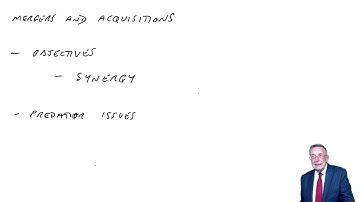 MERGERS AND ACQUISITIONS
- OBJECTIVES
- SYNERGY
- PREDATOR ISSUES